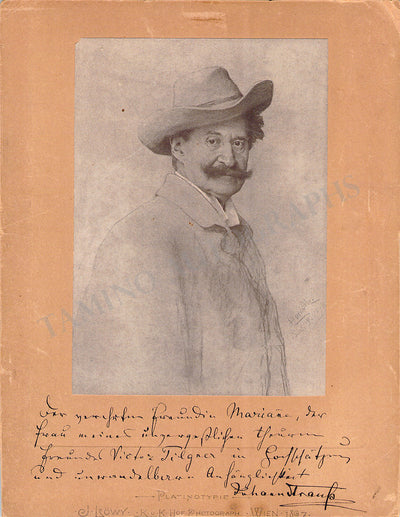 TAMINO AUTOGRAPHS
Der verehrten Freundin Mariane, der
Frau meines unvergeßlichen theuren
Freundes Victor Tilgner in Hochschätzung
und unwandelbarer Anhänglichkeit
Johann Strauss
PLATINOTYPIE
J. LÖWY K.u.K. HOF-PHOTOGRAPH WIEN 1897.